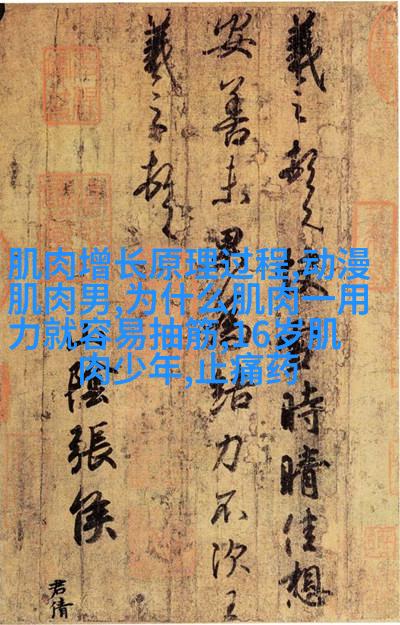 肌肉增长原理过程,动漫
肌肉男,为什么肌肉一用
力就容易抽筋,16岁肌
肉少年,止痛药
羲之頓首快雪時晴佳想
安善未果為結力不次王
羲之頓首
山陰張侯
君倩